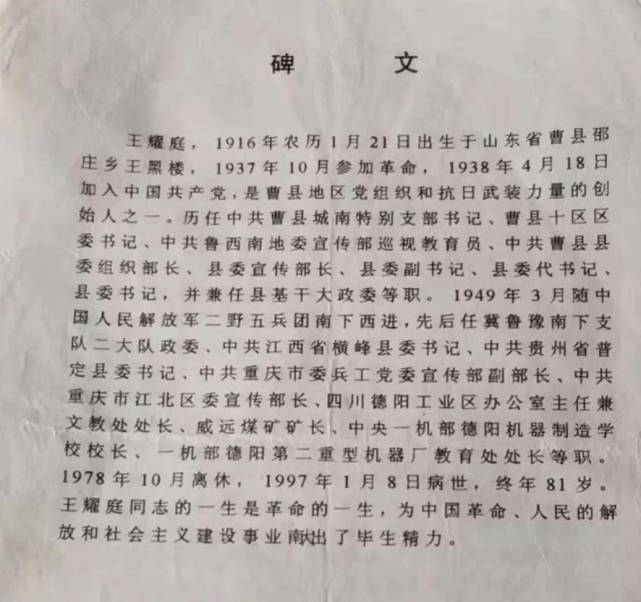 碑 文
王耀庭，1916年农历1月21日出生于山东省曹县邵
庄乡王黑楼，1937年10月参加革命，1938年4月18日
加入中国共产党，是曹县地区党组织和抗日武装力量的创
始人之一。历任中共曹县城南特别支部书记、曹县十区区
委书记、中共鲁西南地委宣传部巡视教育员、中共曹县县
委组织部长、县委宣传部长、县委副书记、县委代书记、
县委书记，并兼任县基干大政委等职。1949年3月随中
国人民解放军二野五兵团南下西进，先后任冀鲁豫南下支
队二大队政委、中共江西省横峰县委书记、中共贵州省普
定县委书记、中共重庆市委兵工党委宣传部副部长、中共
重庆市江北区委宣传部长、四川德阳工业区办公室主任兼
文教处处长、威远煤矿矿长、中央一机部德阳机器制造学
校校长、一机部德阳第二重型机器厂教育处处长等职。
1978年10月离休，1997年1月8日病世，终年81岁。
王耀庭同志的一生是革命的一生，为中国革命、人民的解
放和社会主义建设事业出了毕生精力。